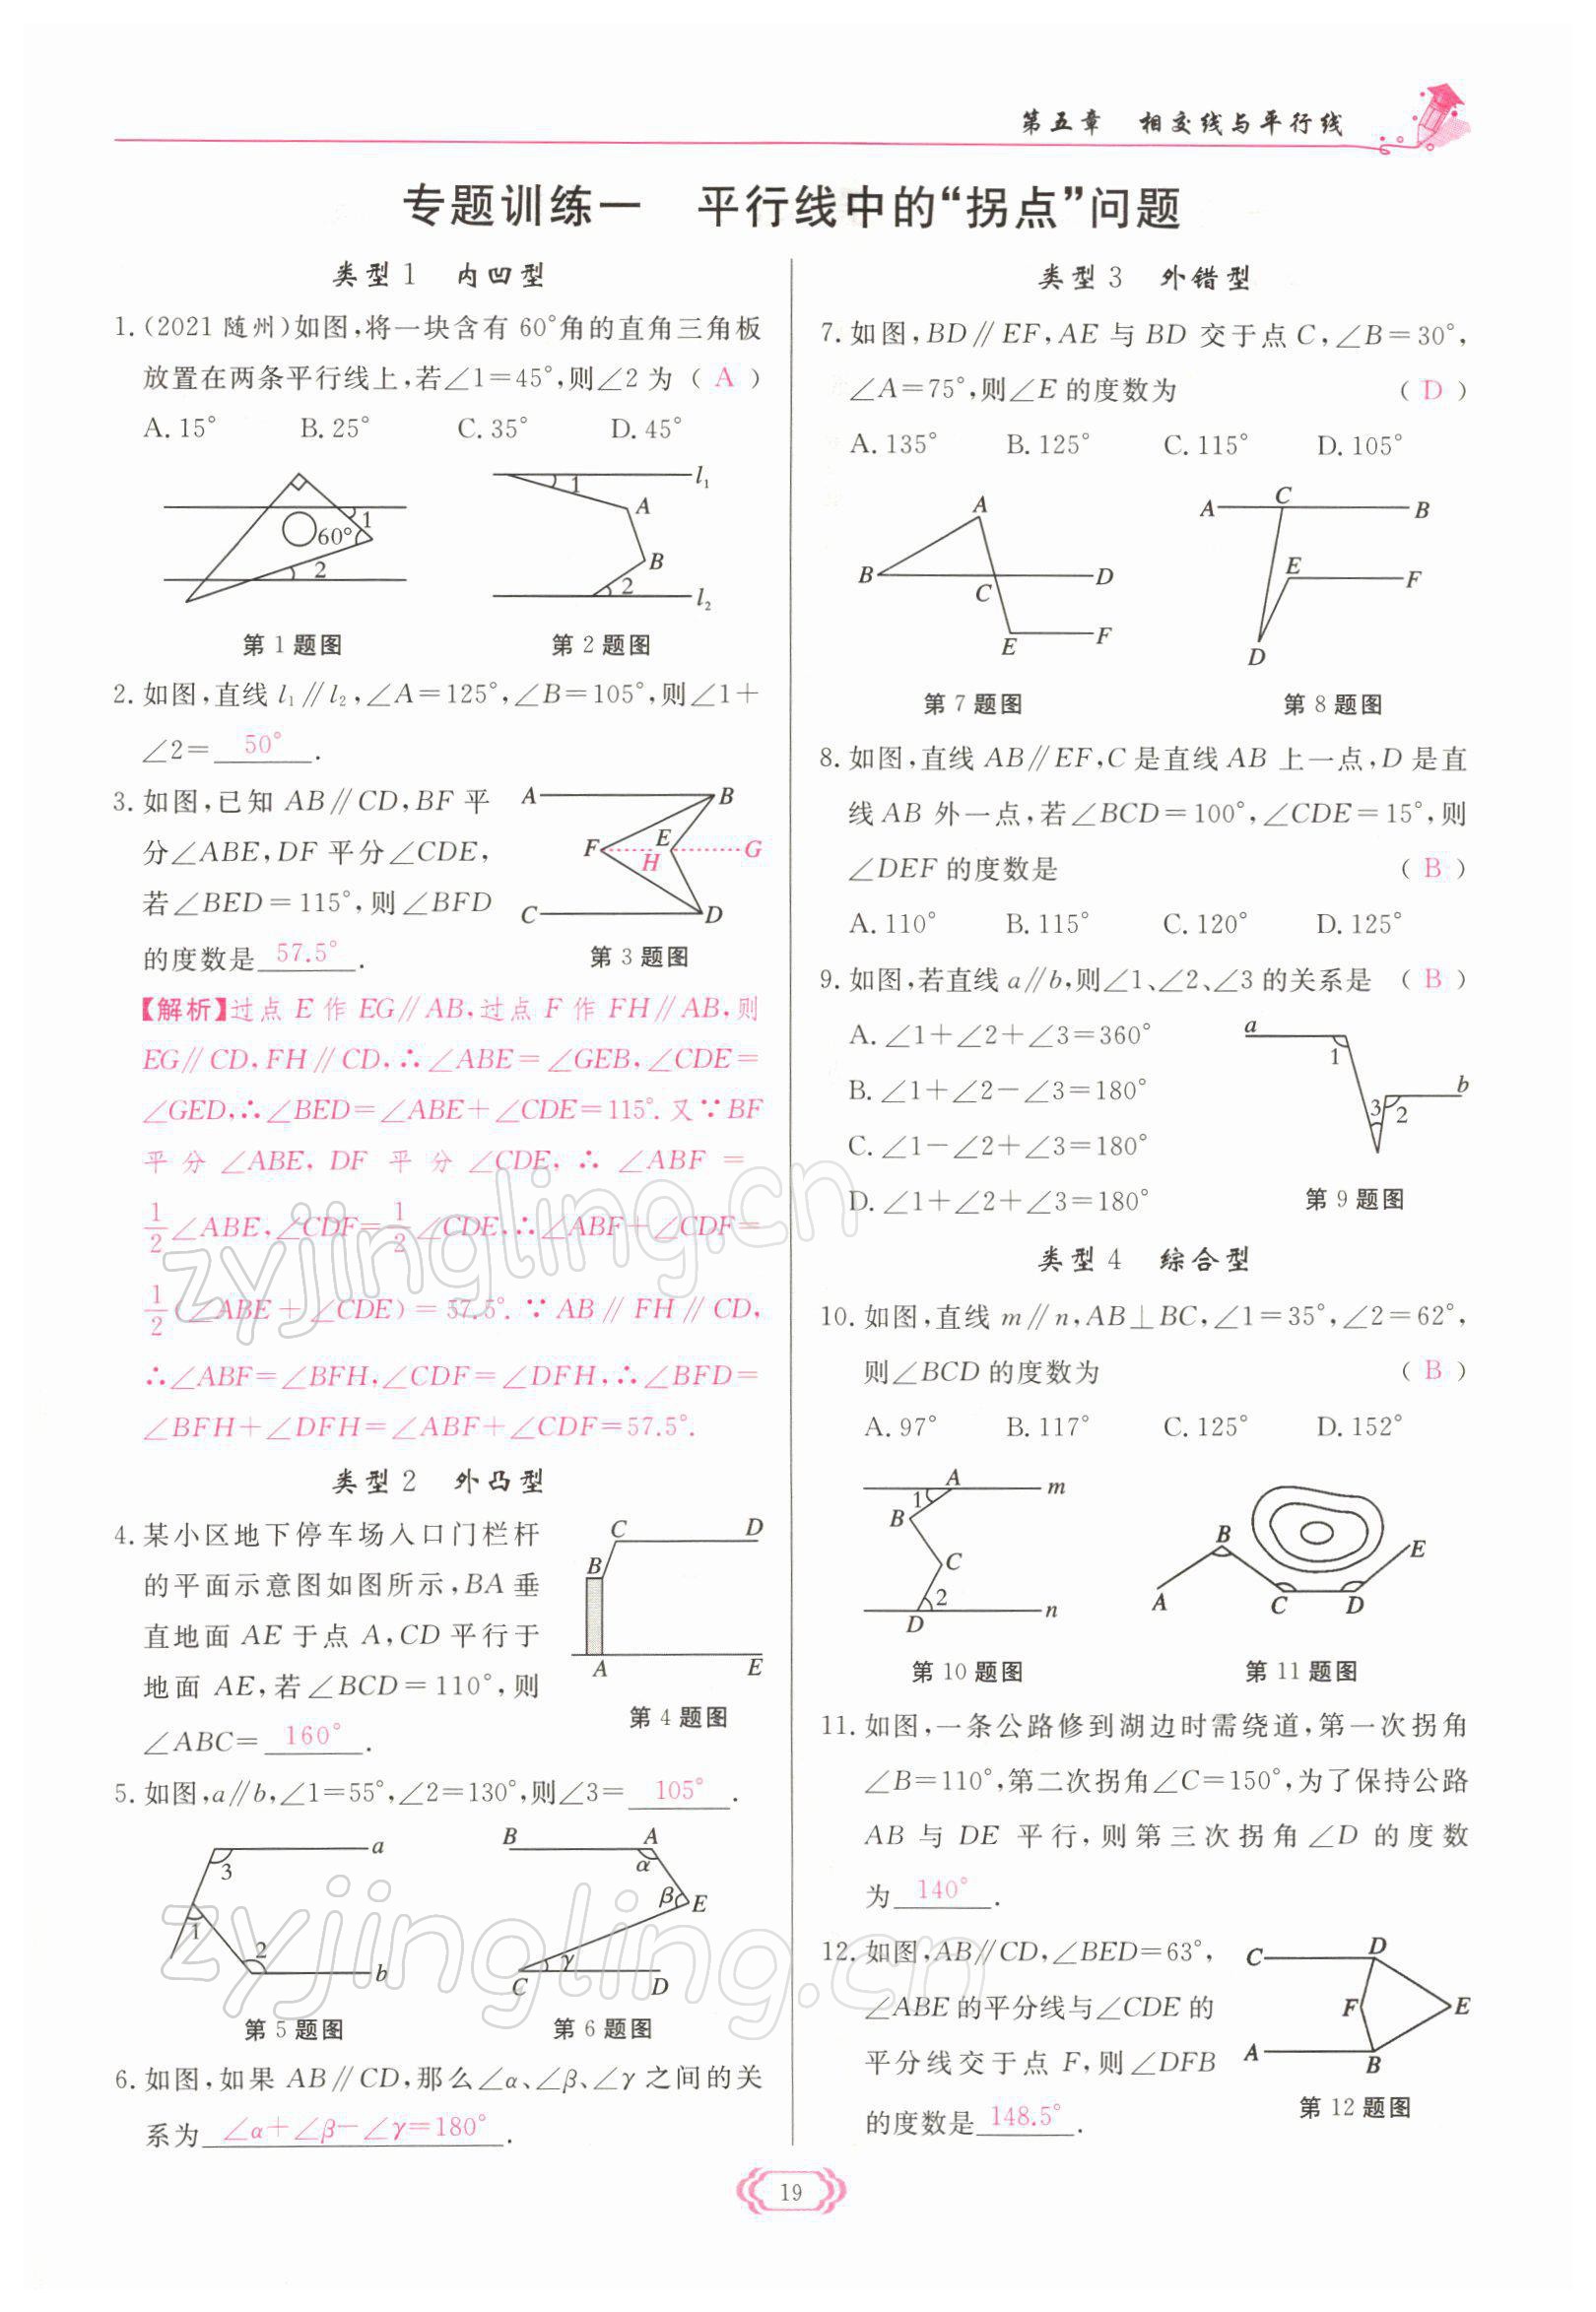 第五章 相交线与平行线
专题训练一 平行线中的“拐点”问题
类型 1 内凹型
1.(2021 随州)如图,将一块含有 60°角的直角三角板
放置在两条平行线上,若∠1=45°,则∠2 为 ( A )
A. 15° B. 25° C. 35° D. 45°
1
60°
2
第 1 题图
l₁
1
A
B
2
l₂
第 2 题图
2. 如图,直线 l₁∥l₂,∠A=125°,∠B=105°,则∠1+
∠2= 50° .
3. 如图,已知 AB∥CD,BF 平
分∠ABE,DF 平分∠CDE,
若∠BED=115°,则∠BFD
的度数是 57.5° .
A B
F E H G
C D
第 3 题图
【解析】过点 E 作 EG∥AB,过点 F 作 FH∥AB,则
EG∥CD,FH∥CD,∴∠ABE=∠GEB,∠CDE=
∠GED,∴∠BED=∠ABE+∠CDE=115°. 又∵BF
平分∠ABE, DF 平分∠CDE, ∴ ∠ABF =
1/2∠ABE,∠CDF=1/2∠CDE,∴∠ABF+∠CDF=
1/2(∠ABE+∠CDE)=57.5°. ∵AB∥FH∥CD,
∴∠ABF=∠BFH,∠CDF=∠DFH,∴∠BFD=
∠BFH+∠DFH=∠ABF+∠CDF=57.5°.
类型 2 外凸型
4. 某小区地下停车场入口门栏杆
的平面示意图如图所示,BA 垂
直地面 AE 于点 A,CD 平行于
地面 AE,若∠BCD=110°,则
∠ABC= 160° .
C D
B
A E
第 4 题图
5. 如图,a∥b,∠1=55°,∠2=130°,则∠3= 105° .
a
3
1
2
b
第 5 题图
B A
α
β E
γ
C D
第 6 题图
6. 如图,如果 AB∥CD,那么∠α、∠β、∠γ 之间的关
系为 ∠α+∠β-∠γ=180° .
类型 3 外错型
7. 如图,BD∥EF,AE 与 BD 交于点 C,∠B=30°,
∠A=75°,则∠E 的度数为 ( D )
A. 135° B. 125° C. 115° D. 105°
A
B C D
E F
第 7 题图
A C B
E F
D
第 8 题图
8. 如图,直线 AB∥EF,C 是直线 AB 上一点,D 是直
线 AB 外一点,若∠BCD=100°,∠CDE=15°,则
∠DEF 的度数是 ( B )
A. 110° B. 115° C. 120° D. 125°
9. 如图,若直线 a∥b,则∠1、∠2、∠3 的关系是 ( B )
A. ∠1+∠2+∠3=360°
B. ∠1+∠2-∠3=180°
C. ∠1-∠2+∠3=180°
D. ∠1+∠2+∠3=180°
a
1
b
3 2
第 9 题图
类型 4 综合型
10. 如图,直线 m∥n,AB⊥BC,∠1=35°,∠2=62°,
则∠BCD 的度数为 ( B )
A. 97° B. 117° C. 125° D. 152°
A m
1
B
C
2
D n
第 10 题图
B E
A C D
第 11 题图
11. 如图,一条公路修到湖边时需绕道,第一次拐角
∠B=110°,第二次拐角∠C=150°,为了保持公路
AB 与 DE 平行,则第三次拐角∠D 的度数
为 140° .
12. 如图,AB∥CD,∠BED=63°,
∠ABE 的平分线与∠CDE 的
平分线交于点 F,则∠DFB
的度数是 148.5° .
C D
F E
A B
第 12 题图
19
zyjingling.cn
zyjingling.cn